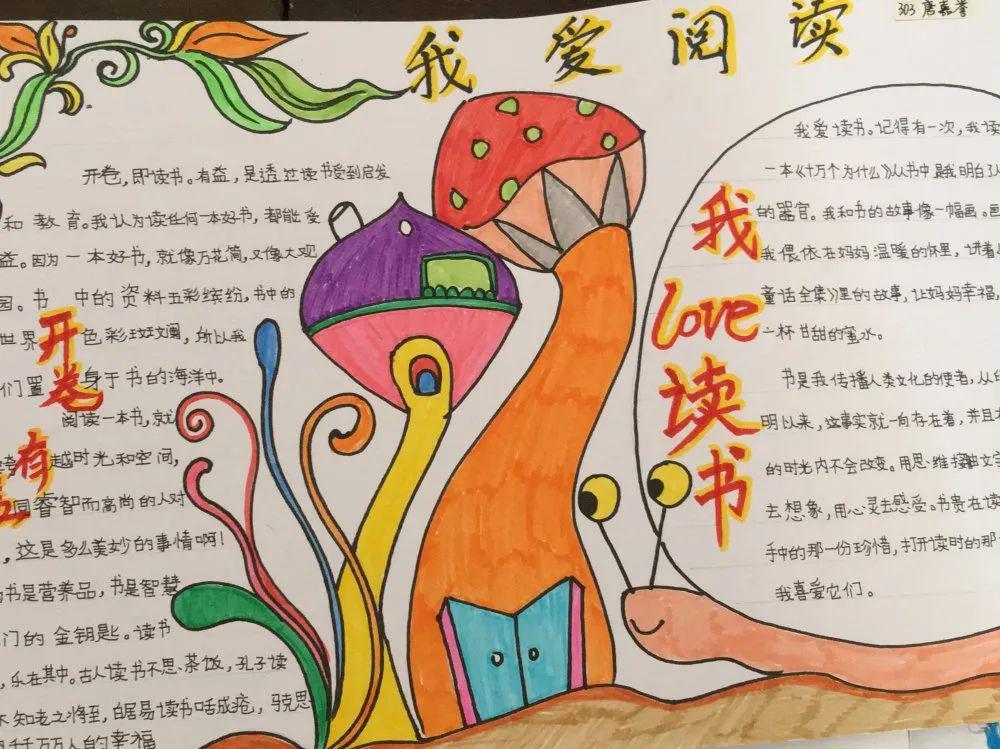 303 唐嘉誉
我爱阅读
开卷，即读书。有益，是透过读书受到启发
和教育。我认为读任何一本好书，都能受
益。因为一本好书，就像万花筒，又像大观
园。书中的资料五彩缤纷，书中的
世界色彩斑斓，所以我
们置身于书的海洋中。
阅读一本书，就
越时光和空间，
同睿智而高尚的人对
，这是多么美妙的事情啊！
书是营养品，书是智慧
门的金钥匙。读书
，乐在其中。古人读书不思茶饭，孔子读
不知老之将至，白居易读书咶成疮，骁思
千万万人的幸福
开卷有益
我爱读书。记得有一次，我读
一本《十万个为什么》从书中是我明白了人
的器官。我和书的故事像一幅画。画
我偎依在妈妈温暖的怀里，讲着
童话全集》里的故事，让妈妈幸福，
一杯甘甜的蜜水。
书是我传播人类文化的使者，从
明以来，这事实就一向存在着，并且
的时光内不会改变。用思维接触文字
去想象，用心灵去感受。书贵在读
手中的那一份珍惜，打开读时的那
我喜爱它们。
我love读书